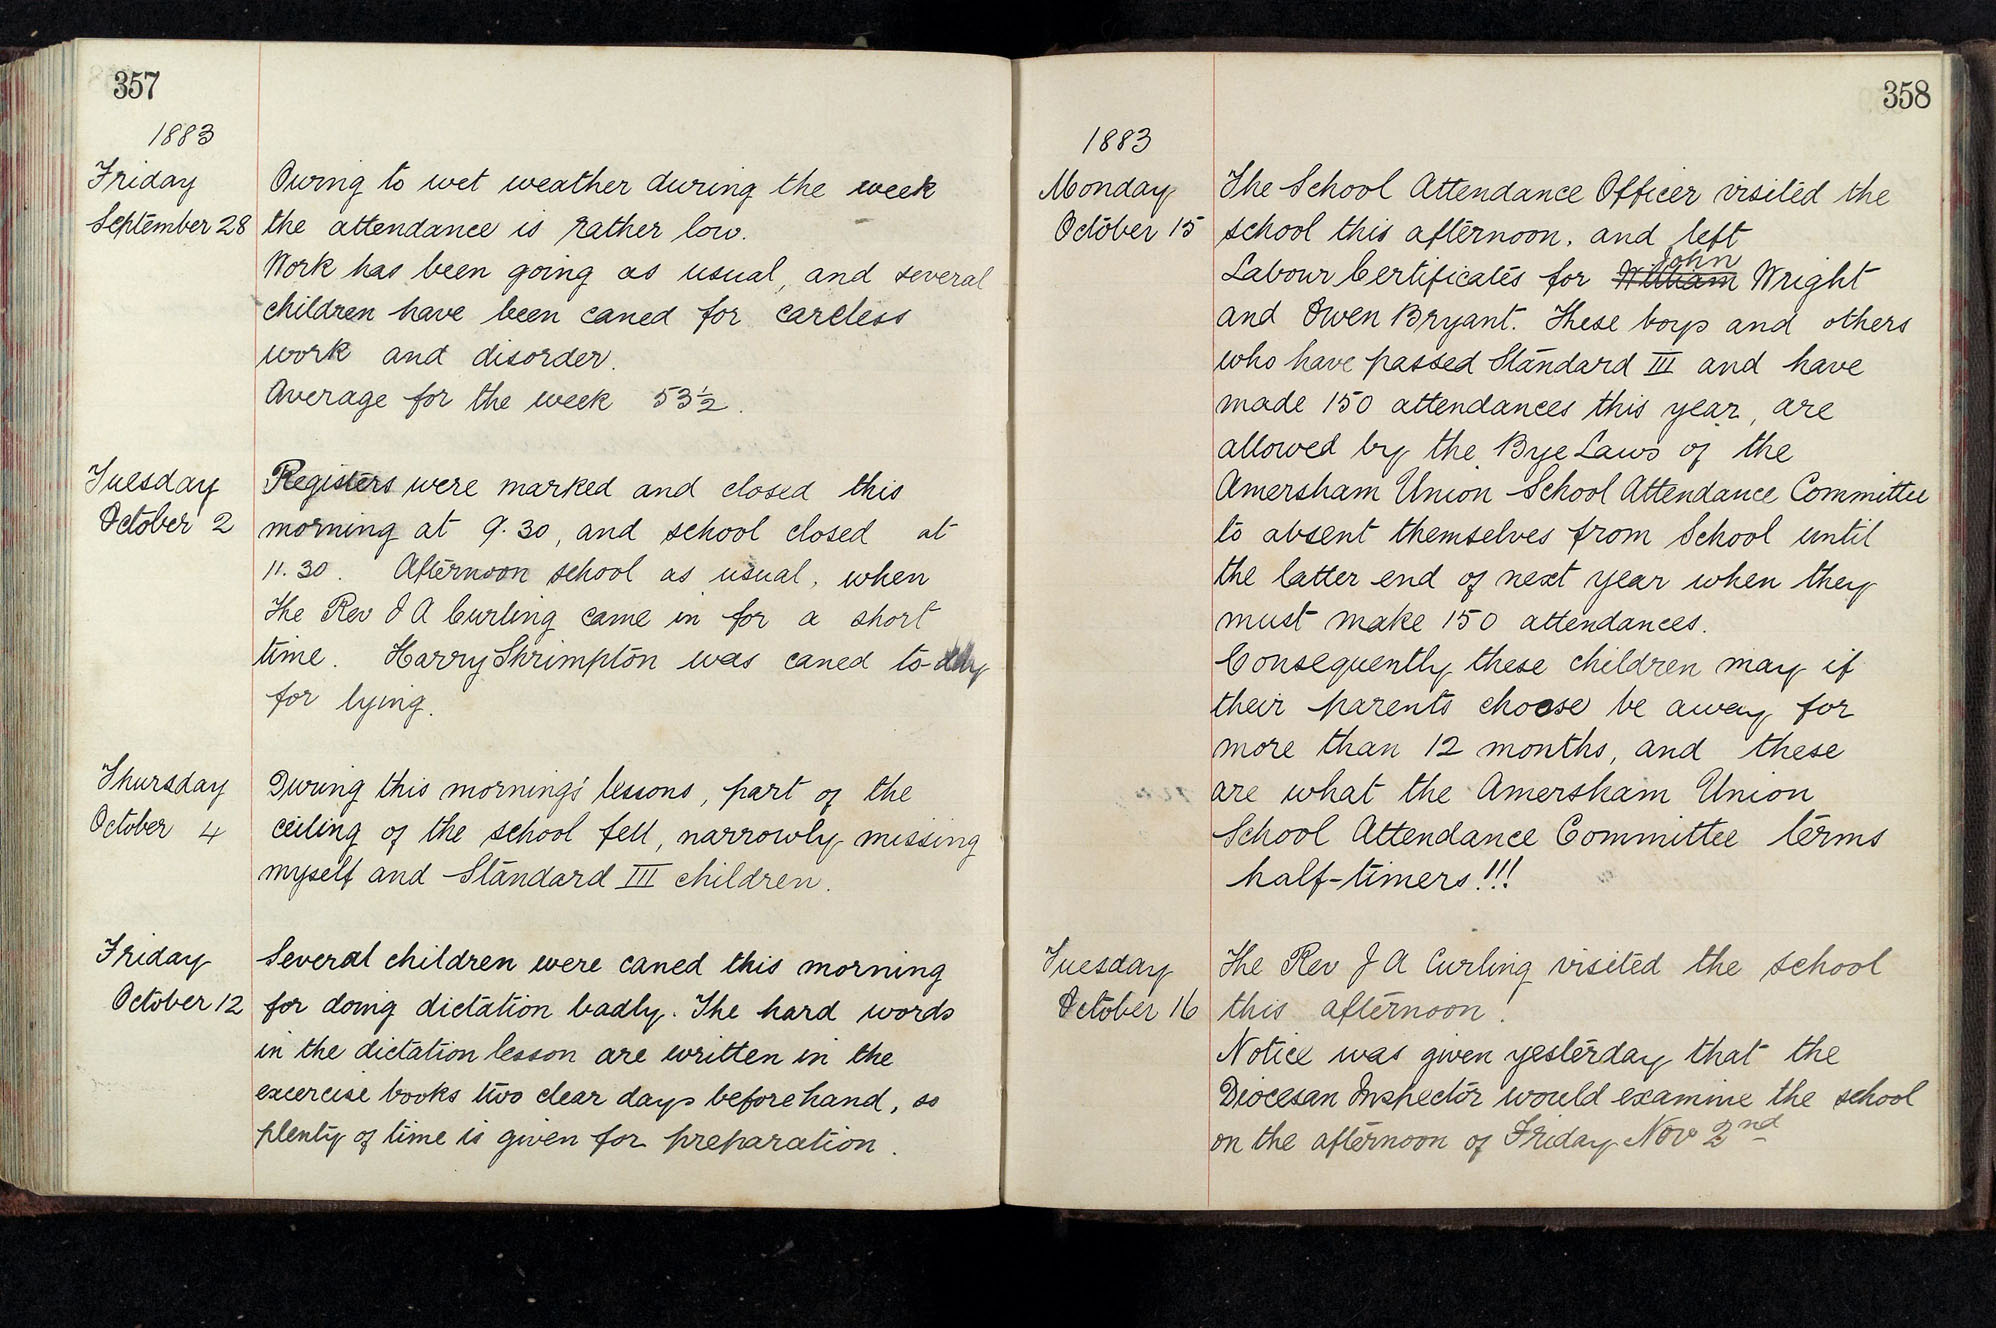 357
1883
Friday
September 28
Owing to wet weather during the week
the attendance is rather low.
Work has been going as usual, and several
children have been caned for careless
work and disorder.
Average for the week 53½.
Tuesday
October 2
Registers were marked and closed this
morning at 9.30, and school closed at
11.30. Afternoon school as usual, when
the Rev J A Curling came in for a short
time. Harry Shrimpton was caned to-day
for lying.
Thursday
October 4
During this morning's lessons, part of the
ceiling of the school fell, narrowly missing
myself and Standard III children.
Friday
October 12
Several children were caned this morning
for doing dictation badly. The hard words
in the dictation lesson are written in the
exercise books two clear days beforehand, so
plenty of time is given for preparation.
358
1883
Monday
October 15
The School Attendance Officer visited the
school this afternoon, and left
Labour Certificates for William John Wright
and Owen Bryant. These boys and others
who have passed Standard III and have
made 150 attendances this year, are
allowed by the Bye Laws of the
Amersham Union School Attendance Committee
to absent themselves from School until
the latter end of next year when they
must make 150 attendances.
Consequently these children may if
their parents choose be away for
more than 12 months, and these
are what the Amersham Union
School Attendance Committee terms
half-timers!!!
Tuesday
October 16
The Rev J A Curling visited the school
this afternoon.
Notice was given yesterday that the
Diocesan Inspector would examine the school
on the afternoon of Friday Nov 2nd